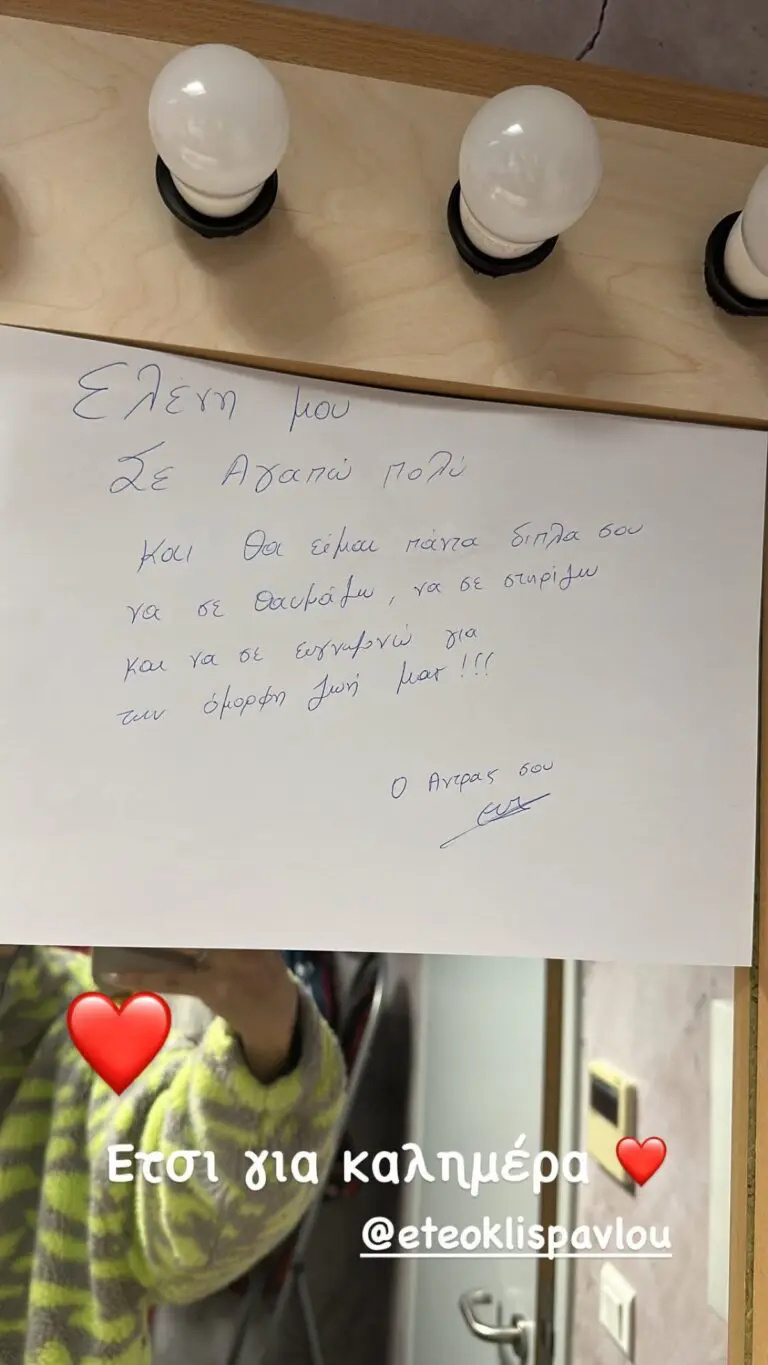 Ελένη μου
Σε Αγαπώ πολύ
Και θα είμαι πάντα διπλα σου
να σε θαυμάζω, να σε στηρίζω
και να σε ευγνωμονώ για
την όμορφη ζωή μας!!!
Ο Αντρας σου
Ετσι για καλημέρα ❤️
@eteoklispavlou